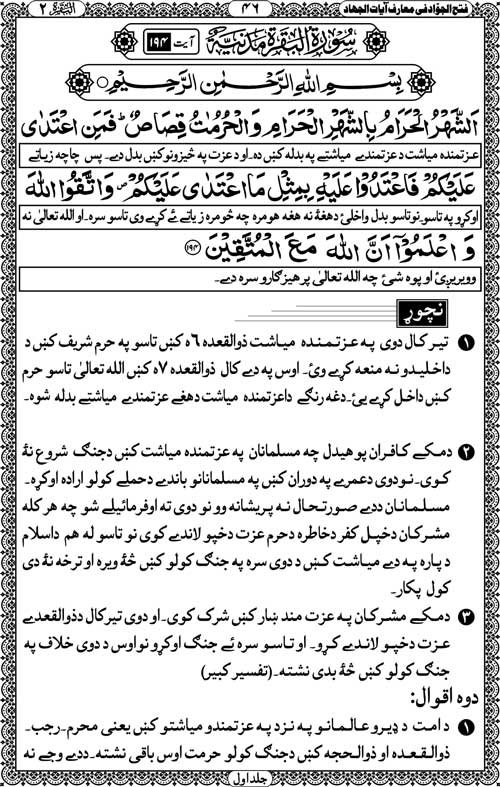 فتح الجوّاد فی معارف آیات الجهاد ۴۶ البقرة ۲
سُوۡرَةُ الۡبَقَرَةِ مَدَنِيَّةٌ آیت ۱۹۴
بِسۡمِ اللهِ الرَّحۡمٰنِ الرَّحِيۡمِ
اَلشَّهۡرُ الۡحَرَامُ بِالشَّهۡرِ الۡحَرَامِ وَالۡحُرُمٰتُ قِصَاصٌ ؕ فَمَنِ اعۡتَدٰى
عزتمنده میاشت د عزتمندے میاشتے په بدله کښ ده۔ او د عزت په څیزونو کښ بدل دے۔ پس چا چه زیاتے
عَلَيۡكُمۡ فَاعۡتَدُوۡا عَلَيۡهِ بِمِثۡلِ مَا اعۡتَدٰى عَلَيۡكُمۡ ۪ وَاتَّقُوا اللّٰهَ
اوکړو په تاسو۔ نو تاسو بدل واخلئ د هغۀ نه هغه هومره چه څومره زیاتے ئے کړے وی تاسو سره۔ او الله تعالیٰ نه
وَاعۡلَمُوۡۤا اَنَّ اللّٰهَ مَعَ الۡمُتَّقِيۡنَ ﴿۱۹۴﴾
وویریږئ او پوه شئ چه الله تعالیٰ پرهیزګارو سره دے۔
نچوړ
۱ تیر کال دوی په عزتمنده میاشت ذوالقعده ۶ه کښ تاسو په حرم شریف کښ د
داخلیدو نه منعه کړے وئ۔ اوس په دے کال ذوالقعده ۷ه کښ الله تعالیٰ تاسو حرم
کښ داخل کړے یئ۔ دغه رنګے دا عزتمنده میاشت دهغے عزتمندے میاشتے بدله شوه۔
۲ دمکے کافران پوهیدل چه مسلمانان په عزتمنده میاشت کښ دجنګ شروع نۀ
کوی۔ نو دوی دعمرے په دوران کښ په مسلمانانو باندے دحملے کولو اراده اوکړه۔
مسلمانان ددے صورتحال نه پریشانه وو نو دوی ته اوفرمائیلے شو چه هر کله
مشرکان دخپل کفر دخاطره دحرم عزت دخپو لاندے کوی نو تاسو له هم داسلام
د پاره په دے میاشت کښ د دوی سره په جنګ کولو کښ څۀ ویره او ترخه نۀ دی
کول پکار۔
۳ دمکے مشرکان په عزت مند ښار کښ شرک کوی۔ او دوی تیر کال دذوالقعدے
عزت دخپو لاندے کړو۔ او تاسو سره ئے جنګ اوکړو نو اوس د دوی خلاف په
جنګ کولو کښ څۀ بدی نشته۔ (تفسیر کبیر)
دوه اقوال:
۱ د امت د ډیرو عالمانو په نزد په عزتمندو میاشتو کښ یعنی محرم۔ رجب۔
ذوالقعده او ذوالحجه کښ دجنګ کولو حرمت اوس باقی نشته۔ ددے وجے نه
جلد اول